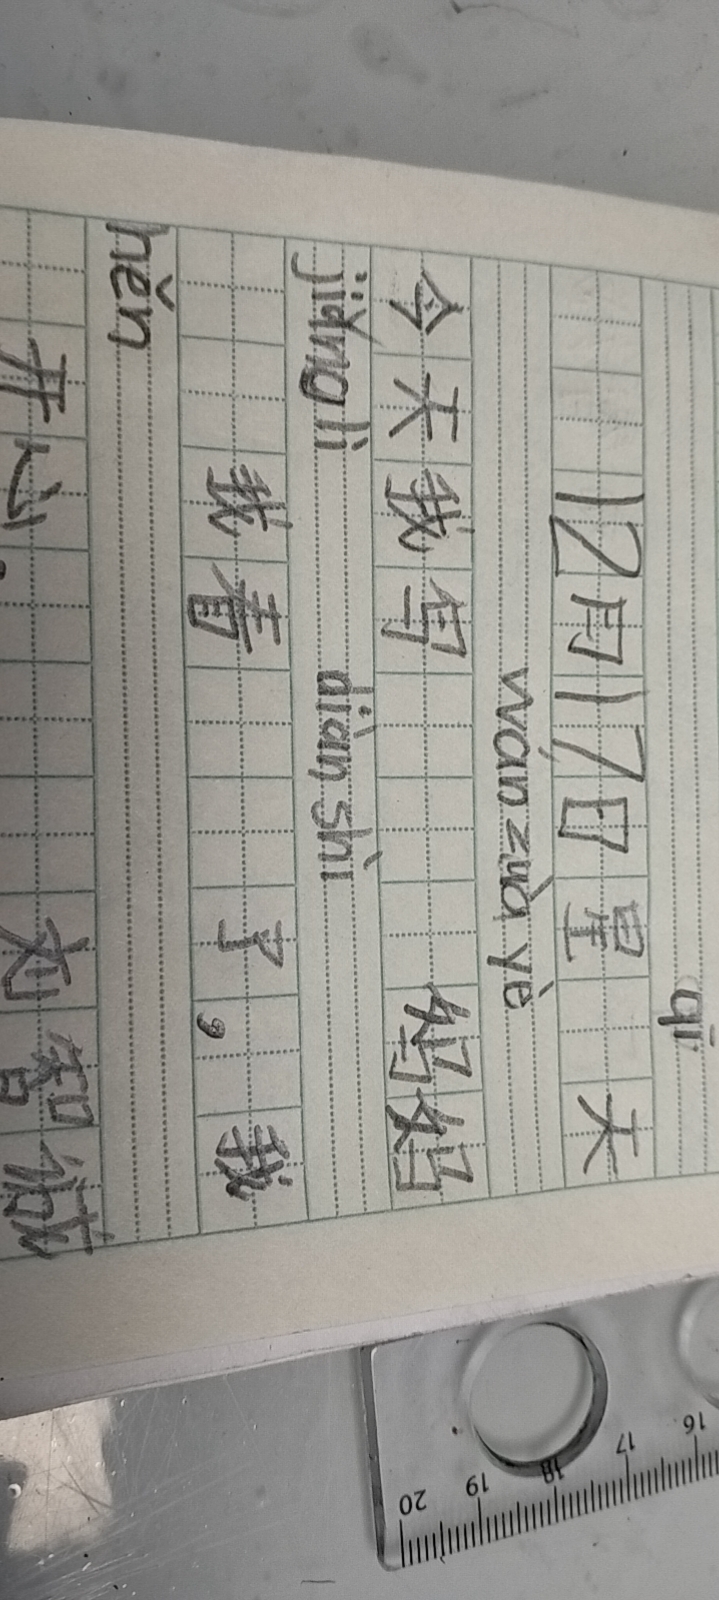 qī
12月17日星 天
wán zuò yè
今天我写 妈妈
jiǎng lì diàn shì
我看 了，我
hěn
开心。 刘智
20 19 18 17 16